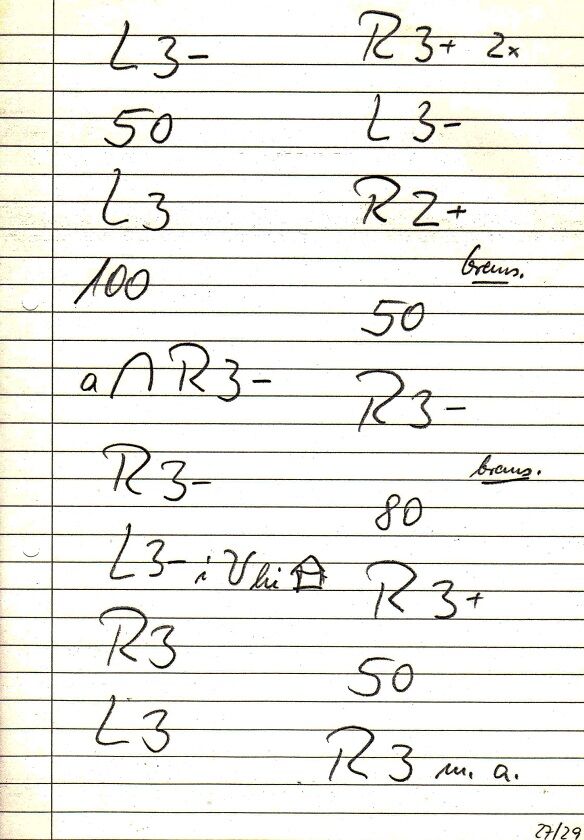 L 3-
50
L 3
100
a ∩ R 3-
R 3-
L 3- i V hi
R 3
L 3
R 3+ 2x
L 3-
R 2+
brems.
50
R 3-
brems.
80
R 3+
50
R 3 m. a.
27/29